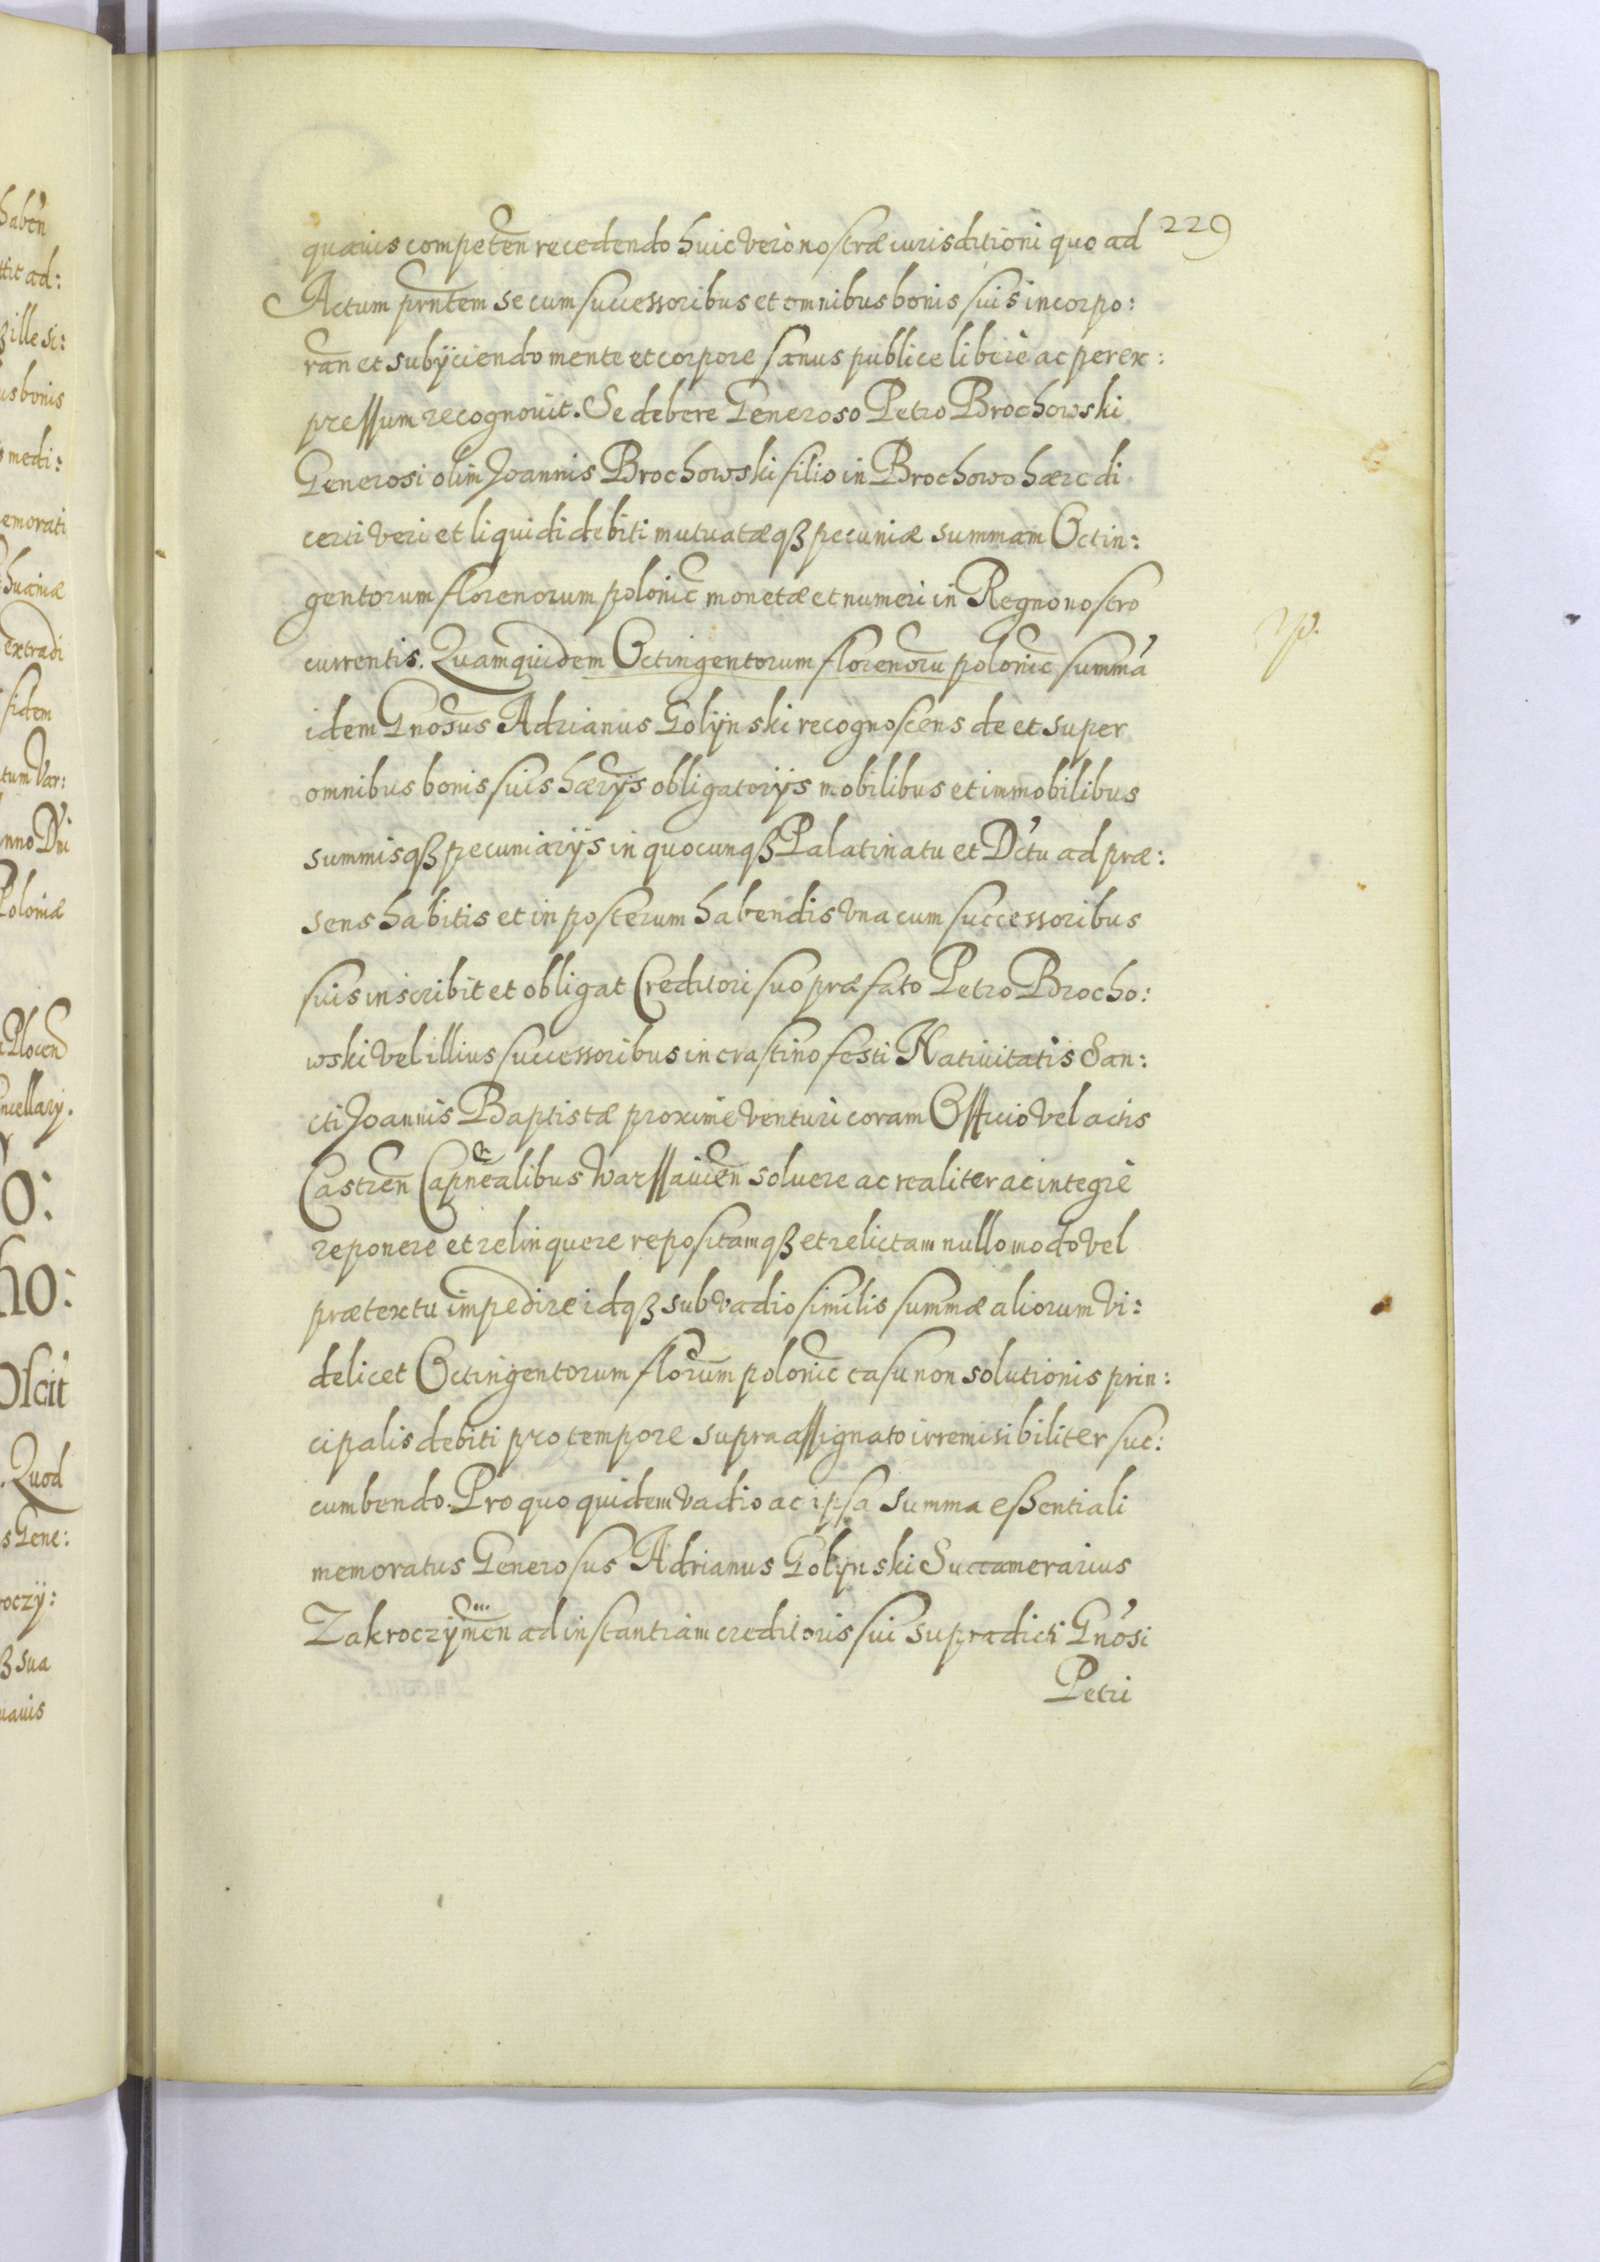 229
quauis competen recedendo huic vero nostræ iurisditioni quo ad
Actum prntem se cum successoribus et omnibus bonis suis incorpo:
ran et subÿciendo mente et corpore sanus publice libere ac per ex:
pressum recognouit. Se debere Generoso Petro Brochowski
Generosi olim Joannis Brochowski filio in Brochowo hæredi
certi veri et liquidi debiti mutuatæqꝫ pecuniæ summam Octin:
gentorum florenorum polonic monetæ et numeri in Regno nostro
currentis. Quamquidem Octingentorum florenoru polonic summa
idem Gnosus Adrianus Golÿnski recognoscens de et super
omnibus bonis suis hærÿs obligatorÿs mobilibus et immobilibus
summisqꝫ pecuniarÿs in quocunqꝫ Palatinatu et Dctu ad præ:
sens habitis et in posterum habendis vna cum successoribus
suis inscribit et obligat Creditori suo præfato Petro Brocho:
wski vel illius successoribus in crastino festi Natiuitatis San:
cti Joannis Baptistæ proxime venturi coram Officio vel actis
Castren Capnealibus Warssauien soluere ac realiter ac integre
reponere et relinquere repositamqꝫ et relictam nullo modo vel
prætextu impedire idqꝫ sub vadio similis summæ aliorum vi:
delicet Octingentorum florum polonic casu non solutionis prin:
cipalis debiti pro tempore supra assignato irremisibiliter suc:
cumbendo. Pro quo quidem vadio ac ipsa summa essentiali
memoratus Generosus Adrianus Golÿnski Succamerarius
Zakroczÿmen ad instantiam creditoris sui supradicti Gnosi
Petri